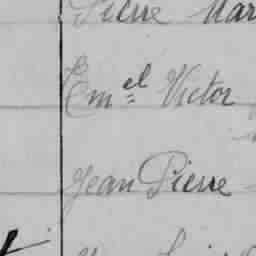 Pierre Mar
Em.el Victor
Jean Pierre